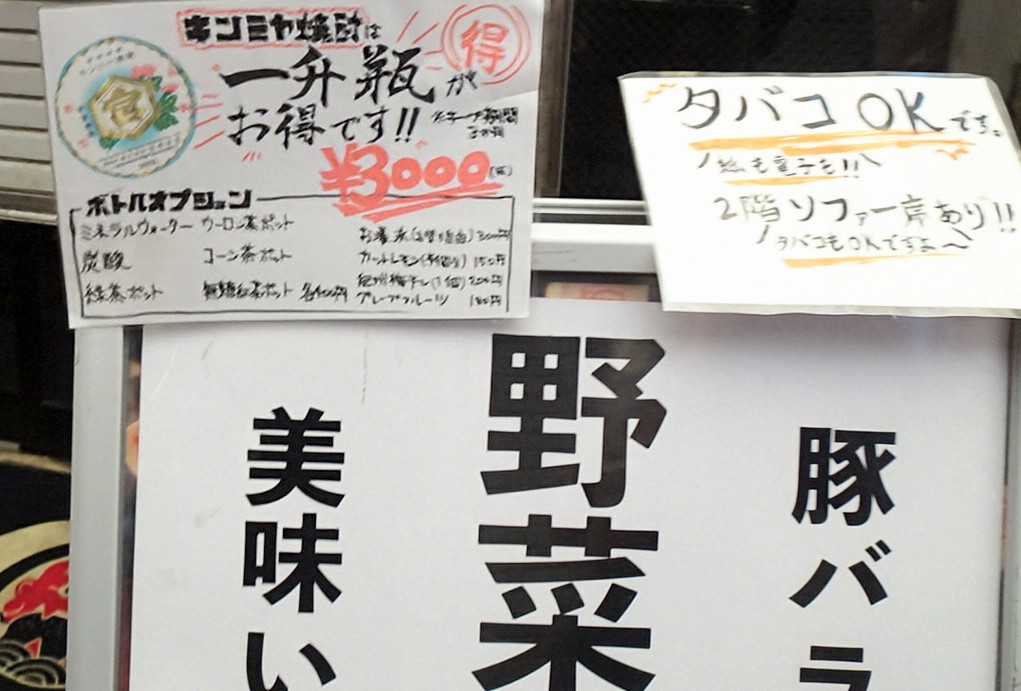 キンミヤ焼酎は
一升瓶が
得
お得です!!
※キープ期間
3か月
¥3000
ボトルオプション
ミネラルウォーター ウーロン茶ポット
炭酸 コーン茶ポット
緑茶ポット 無糖紅茶ポット 各400円
カットレモン 150円
グレープフルーツ 180円
タバコOKです。
紙も電子も!!
2階ソファー席あり!!
タバコもOKですよ〜
豚バラ
野菜
美味い